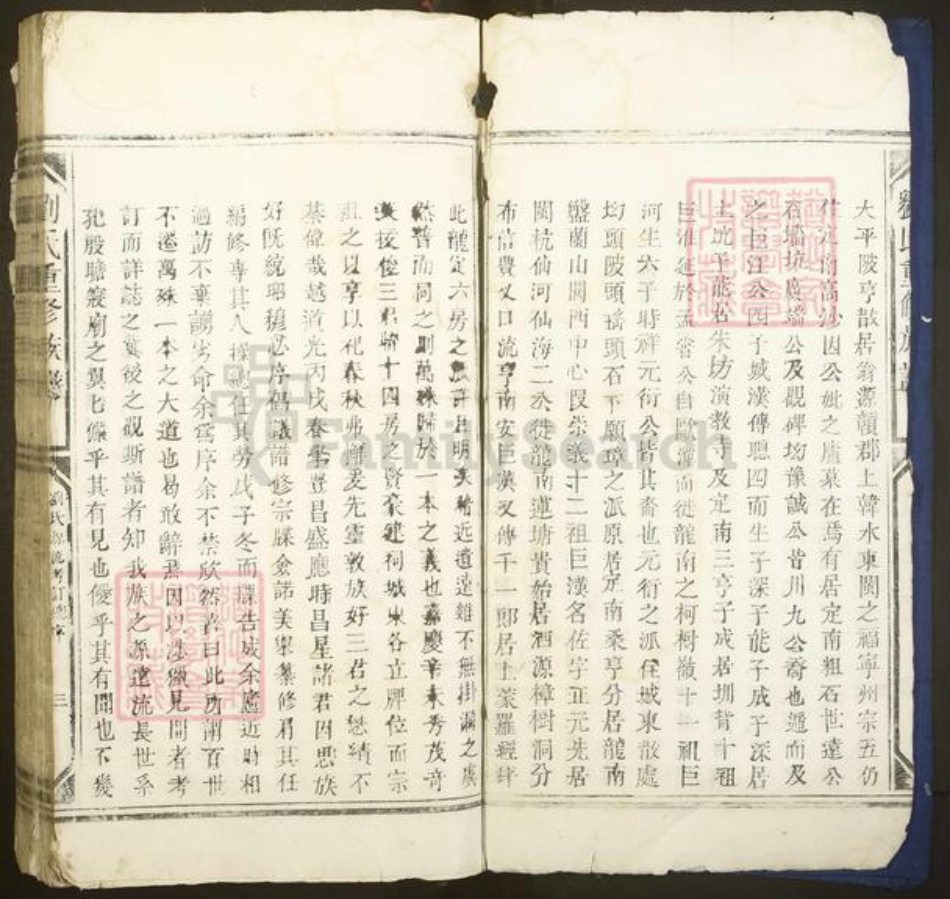 大平陂亨散居翁源贛郡上韓水東閩之福寧州宗五仍
住定南高沙因公妣之廬墓在焉有居定南粗石世遠公
容塘坑應端公及觀碑均豫誠公皆川九公裔也遞而及
之巨注公四子城漢傳聰四而生子深子能子成子深居
上坑子能居朱坊演教寺及定南三亨子成居圳背十祖
巨淮延於孟嘗公自歐潭而徙龍南之柯樹嶺十一祖巨
河生六子時祥元衍公皆其裔也元衍之派住城東散處
均頭陂頭橋頭石下願璋之派原居定南桑亨分居龍南
盤蘭山關西中心段崇義十二祖巨漢名佐字正元先居
閩杭仙河仙海二公徙龍南蓮塘貴始居酒源樟樹洞分
布信豐义口流亨南安巨漢又傳千一郎居上蒙羅經
此龍定六房之 昭明 近遺遠雖不無掛漏之虞
然普而同之則萬殊歸於一本之義也嘉慶辛未秀茂奇
英拔俊三君將十四房之賢豪建祠城東各立牌位而宗
祖之以享以祀春秋弗謝妥先靈敦族好三君之懋績不
綦偉哉越道光丙戌春年豐昌盛應時昌星諸君因思族
好既統昭穆必序倡議譜修宗牒僉諾美舉纂修肩其任
編修專其人操總任其勞戊子冬而牒告成余廬近時相
過訪不棄謭劣命余爲序余不禁欣然喜曰此所謂百世
不遷萬殊一本之大道也曷敢辭焉因以涉獵見聞者考
訂而詳誌之冀後之觀斯譜者知我族之源遠流長世系
犯股瞻寢廟之翼七儼乎其有見也僾乎其有聞也不幾
劉氏重修族譜
劉氏源流考訂總序
三
劉氏重修族譜
FamilySearch